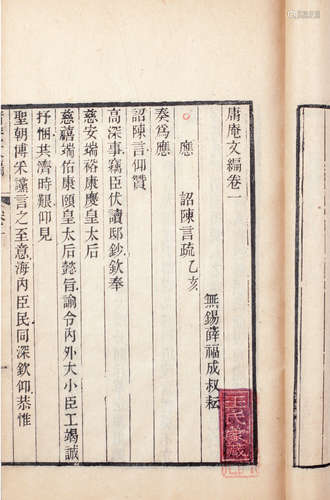 庸庵文編卷一
無錫薛福成叔耘
應　詔陳言疏乙亥
奏為應
詔陳言仰贊
高深事竊臣伏讀邸鈔欽奉
慈安端裕康慶皇太后
慈禧端佑康頤皇太后懿旨諭令內外大小臣工竭誠
抒悃共濟時艱仰見
聖朝博采讜言之至意海內臣民同深欽仰恭惟
王氏家藏